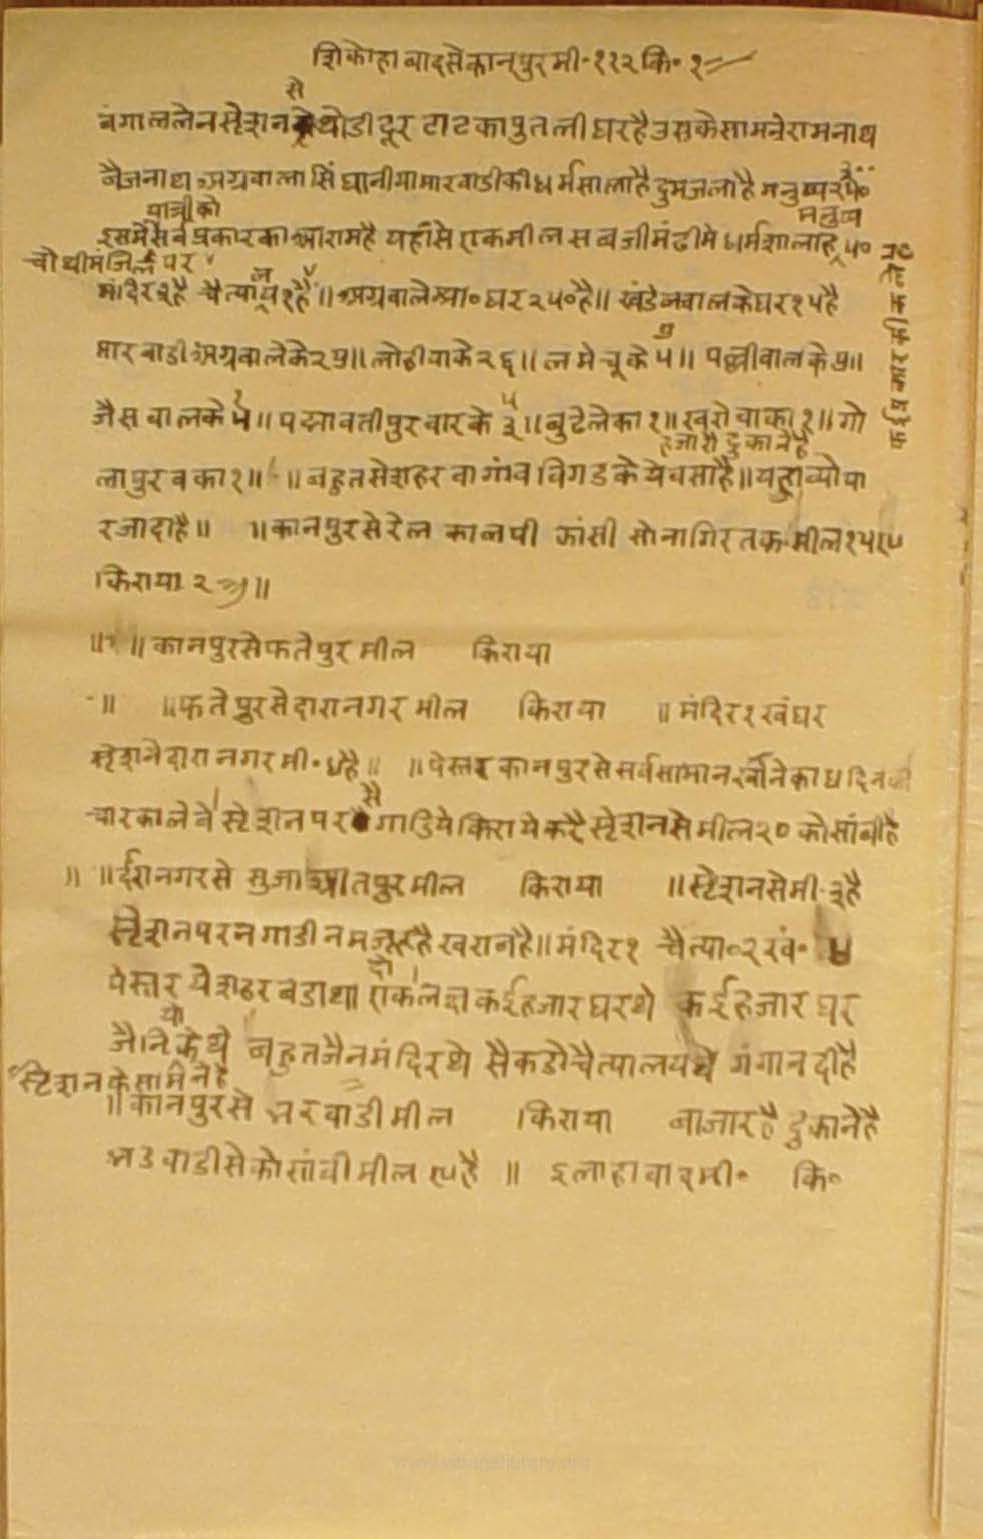 शिकोहाबादसे कानपुर मी॰ ११२ कि॰ १
से
बंगाल लेन स्टेशन थोडी दूर टाटका पुतलीघर है उसके सामने रामनाथ
बैजनाथ अग्रवाला सिंघानीया मारवाडीकी धर्मसाला है दुमजला है मनुष्य
यात्रीको मनुष्य
इसमे सर्व प्रकारका आराम है यहाँसे एक मील सबजीमंढीमे धर्मशाला है ५०
चोथीमंजिल पर
मंदिर २ है चैत्यालय १ है ॥ अग्रवाले आ॰ घर २५० है ॥ खंडेलवालके घर १५ है
मारवाडी अग्रवालेके २५ ॥ लोहीयाके २६ ॥ लमेचूके ५ ॥ पल्लीवालके ५ ॥
जैसवालके ५ ॥ पद्मावतीपुरवारके ३ ॥ बुटेलेका १ ॥ खरोवाका १ ॥ गो
हजारो दुकाने है
लापुरबका १ ॥ ॥ बहुतसे शहर वा गांव विगडके ये वसा है ॥ यहा व्योपा
र जादा है ॥ ॥ कानपुरसे रेल कालपी झांसी सोनागिर तक मील १५५
किराया २
॥ कानपुरसे फतेपुर मील किराया
॥ ॥ फतेपुरसे दारानगर मील किराया ॥ मंदिर १ खं घर
स्टेशनेदारानगर मी॰ ५ है ॥ ॥ पेस्तर कानपुरसे सर्व सामान खानेका ४ दिन
से
चारका लेवे स्टेशन पर गाडिये किराये करै स्टेशनसे मील २० कोसांबी है
॥ ॥ दारानगरसे सुजातपुर मील किराया ॥ स्टेशनसे मी॰ ३ है
स्टेशन पर न गाडी न मजूर है खरान है ॥ मंदिर १ चैत्या॰ २ खं॰ ४
दो
पेस्तर ये शहर बडा था एकलश कई हजार घर थे कई हजार घर
यो
जैनिके थे बहुत जैनमंदिर थे सैकडो चैत्यालय थे गंगा नदी है
स्टेशनके सामने है
॥ कानपुरसे भरवाडी मील किराया बाजार है दुकाने है
भडवाडीसे कोसांबी मील १५ है ॥ इलाहाबाद मी॰ कि॰